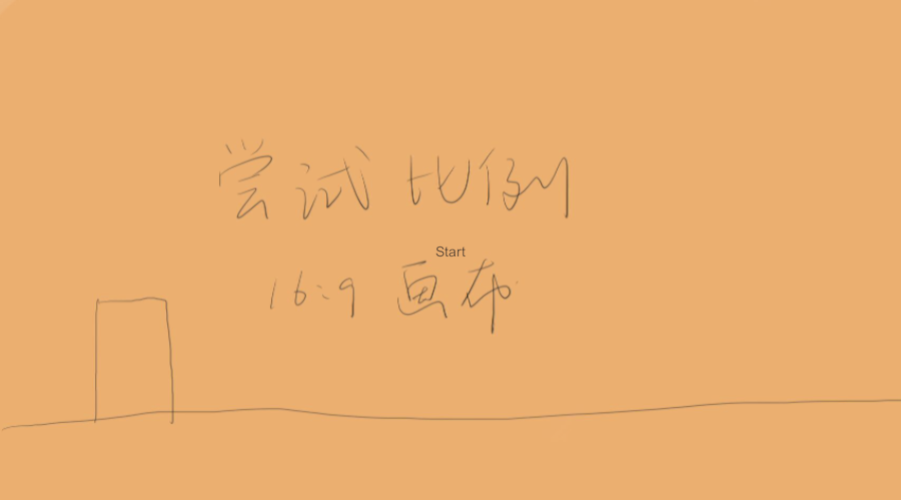 尝试比例
Start
16:9 画布